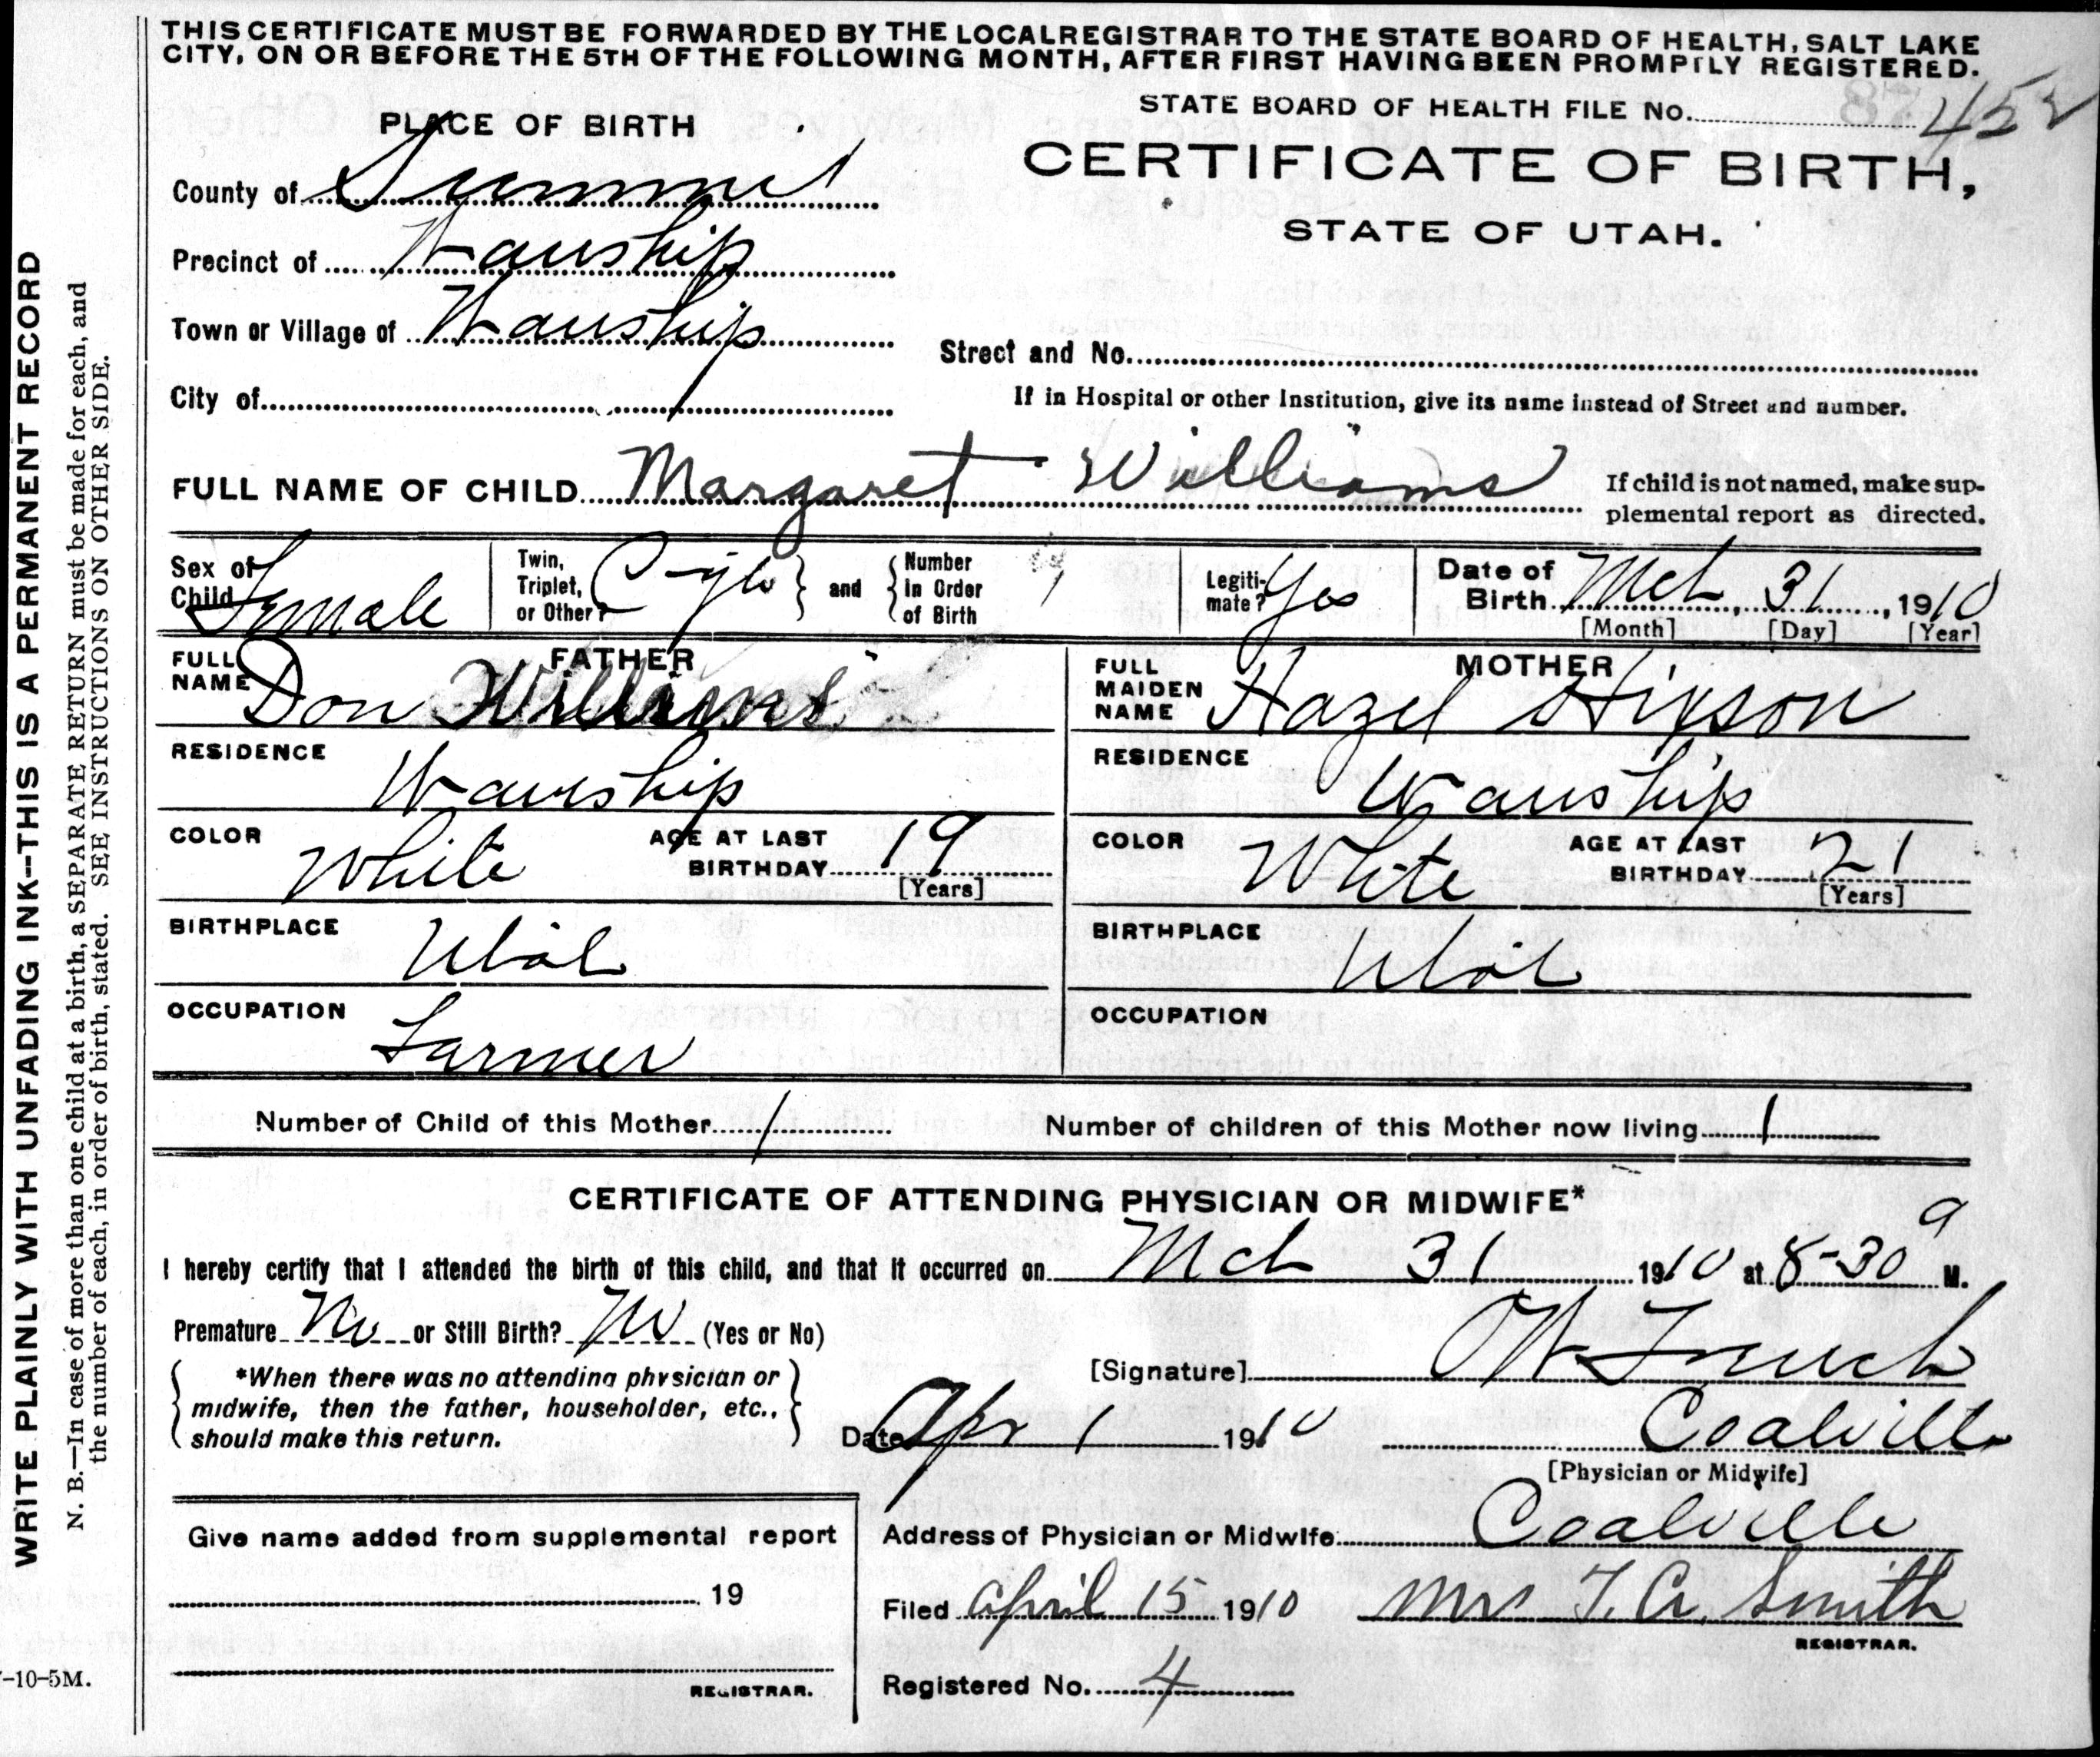 THIS CERTIFICATE MUST BE FORWARDED BY THE LOCAL REGISTRAR TO THE STATE BOARD OF HEALTH, SALT LAKE
CITY, ON OR BEFORE THE 5TH OF THE FOLLOWING MONTH, AFTER FIRST HAVING BEEN PROMPTLY REGISTERED.
STATE BOARD OF HEALTH FILE No. 452
PLACE OF BIRTH
CERTIFICATE OF BIRTH,
STATE OF UTAH.
County of Summit
Precinct of Wanship
Town or Village of Wanship
Street and No.
City of
If in Hospital or other Institution, give its name instead of Street and number.
FULL NAME OF CHILD Margaret Williams
If child is not named, make sup-
plemental report as directed.
Sex of Child Female
Twin, Triplet, or Other?
and
Number in Order of Birth
Legiti-mate? Yes
Date of Birth Mch 31, 1910
[Month] [Day] [Year]
FATHER
FULL NAME Don Williams
RESIDENCE Wanship
COLOR White
AGE AT LAST BIRTHDAY 19
[Years]
BIRTHPLACE Utah
OCCUPATION Farmer
MOTHER
FULL MAIDEN NAME Hazel Hixson
RESIDENCE Wanship
COLOR White
AGE AT LAST BIRTHDAY 21
[Years]
BIRTHPLACE Utah
OCCUPATION
Number of Child of this Mother 1
Number of children of this Mother now living 1
CERTIFICATE OF ATTENDING PHYSICIAN OR MIDWIFE*
I hereby certify that I attended the birth of this child, and that it occurred on Mch 31 1910 at 8-30 a M.
Premature No or Still Birth? No (Yes or No)
*When there was no attending physician or
midwife, then the father, householder, etc.,
should make this return.
[Signature]
Date Apr 1 1910
Coalville
[Physician or Midwife]
Give name added from supplemental report
19
REGISTRAR.
Address of Physician or Midwife Coalville
Filed April 15 1910 Mrs T. A. Smith
REGISTRAR.
Registered No. 4
WRITE PLAINLY WITH UNFADING INK--THIS IS A PERMANENT RECORD
N. B.—In case of more than one child at a birth, a SEPARATE RETURN must be made for each, and
the number of each, in order of birth, stated. SEE INSTRUCTIONS ON OTHER SIDE.
-10-5M.